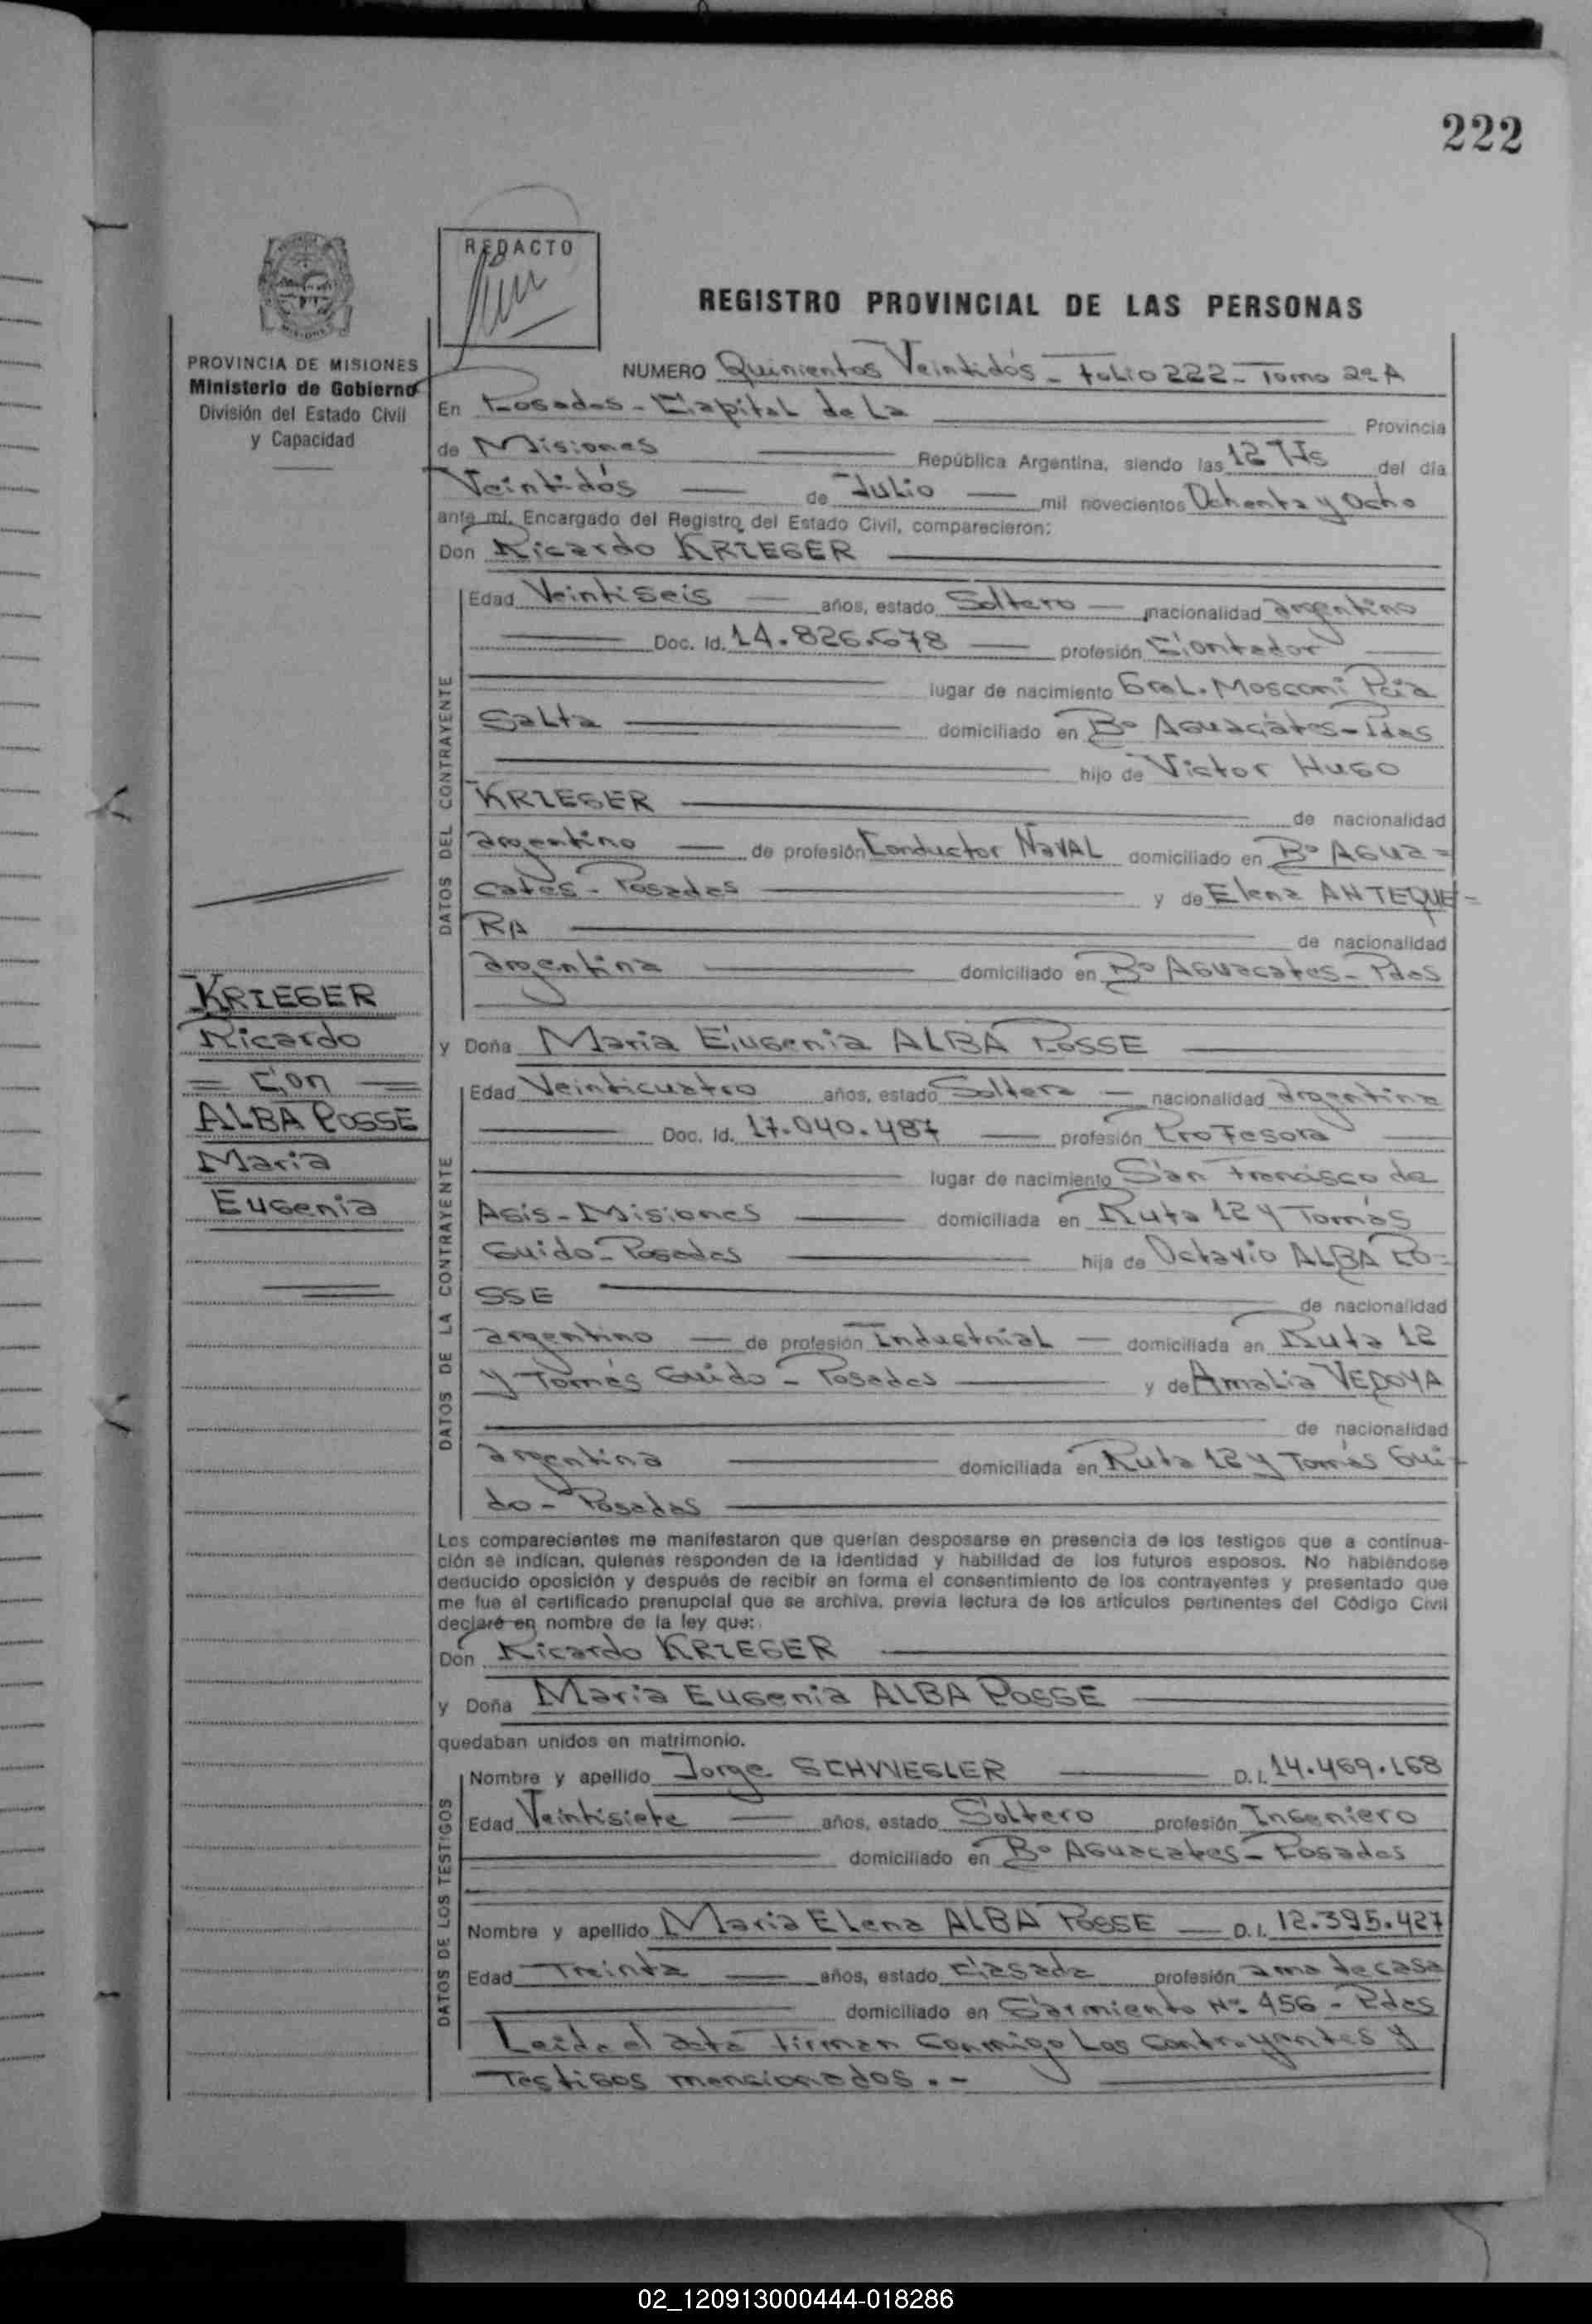 222
REDACTO
REGISTRO PROVINCIAL DE LAS PERSONAS
PROVINCIA DE MISIONES
Ministerio de Gobierno
División del Estado Civil
y Capacidad
NUMERO Quinientos Veintidós - Folio 222 - Tomo 2º A
En Posadas - Capital de La Provincia
de Misiones República Argentina, siendo las 12 Hs del día
Veintidós de Julio mil novecientos Ochenta y Ocho
ante mí, Encargado del Registro del Estado Civil, comparecieron:
Don Ricardo KRIEGER
DATOS DEL CONTRAYENTE
Edad Veintiseis años, estado Soltero nacionalidad argentino
Doc. Id. 14.826.678 profesión Contador
lugar de nacimiento Gral. Mosconi Pcia
Salta domiciliado en Bº Aguacates - Pdas
hijo de Victor Hugo
KRIEGER de nacionalidad
argentino de profesión Conductor Naval domiciliado en Bº Agua=
cates - Posadas y de Elena ANTEQUE=
RA de nacionalidad
argentina domiciliado en Bº Aguacates - Pdas
KRIEGER
Ricardo
= Con =
ALBA POSSE
Maria
Eugenia
y Doña Maria Eugenia ALBA POSSE
DATOS DE LA CONTRAYENTE
Edad Veinticuatro años, estado Soltera nacionalidad argentina
Doc. Id. 17.040.487 profesión Profesora
lugar de nacimiento San Francisco de
Asis - Misiones domiciliada en Ruta 12 y Tomás
Guido - Posadas hija de Octavio ALBA PO=
SSE de nacionalidad
argentino de profesión Industrial domiciliada en Ruta 12
y Tomás Guido - Posadas y de Amalia VEDOYA
de nacionalidad
argentina domiciliada en Ruta 12 y Tomás Gui-
do - Posadas
Los comparecientes me manifestaron que querían desposarse en presencia de los testigos que a continua-
ción se indican, quienes responden de la identidad y habilidad de los futuros esposos. No habiéndose
deducido oposición y después de recibir en forma el consentimiento de los contrayentes y presentado que
me fue el certificado prenupcial que se archiva, previa lectura de los artículos pertinentes del Código Civil
declaré en nombre de la ley que:
Don Ricardo KRIEGER
y Doña Maria Eugenia ALBA POSSE
quedaban unidos en matrimonio.
DATOS DE LOS TESTIGOS
Nombre y apellido Jorge SCHWEGLER D. I. 14.469.168
Edad Veintisiete años, estado Soltero profesión Ingeniero
domiciliado en Bº Aguacates - Posadas
Nombre y apellido Maria Elena ALBA POSSE D. I. 12.395.427
Edad Treinta años, estado Casada profesión ama de casa
domiciliado en Sarmiento Nº 456 - Pdas
Leida el acta firman conmigo Los contrayentes y
Testigos mencionados. -
02_120913000444-018286